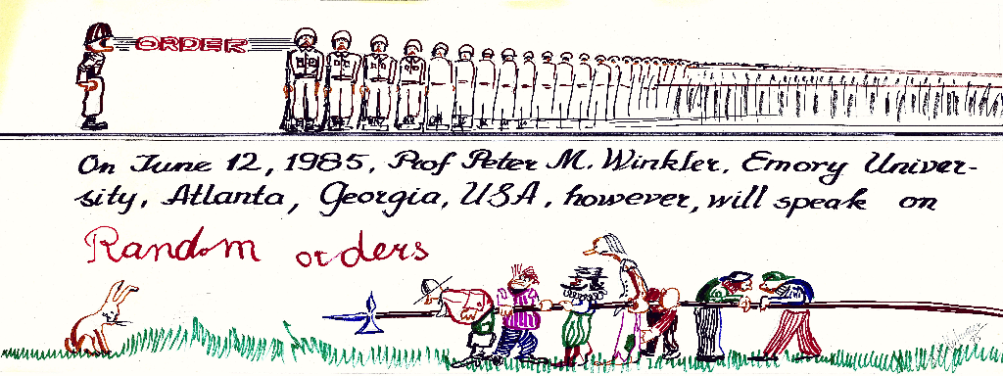 ORDER
On June 12, 1985, Prof Peter M. Winkler, Emory Univer-
sity, Atlanta, Georgia, USA, however, will speak on
Random orders